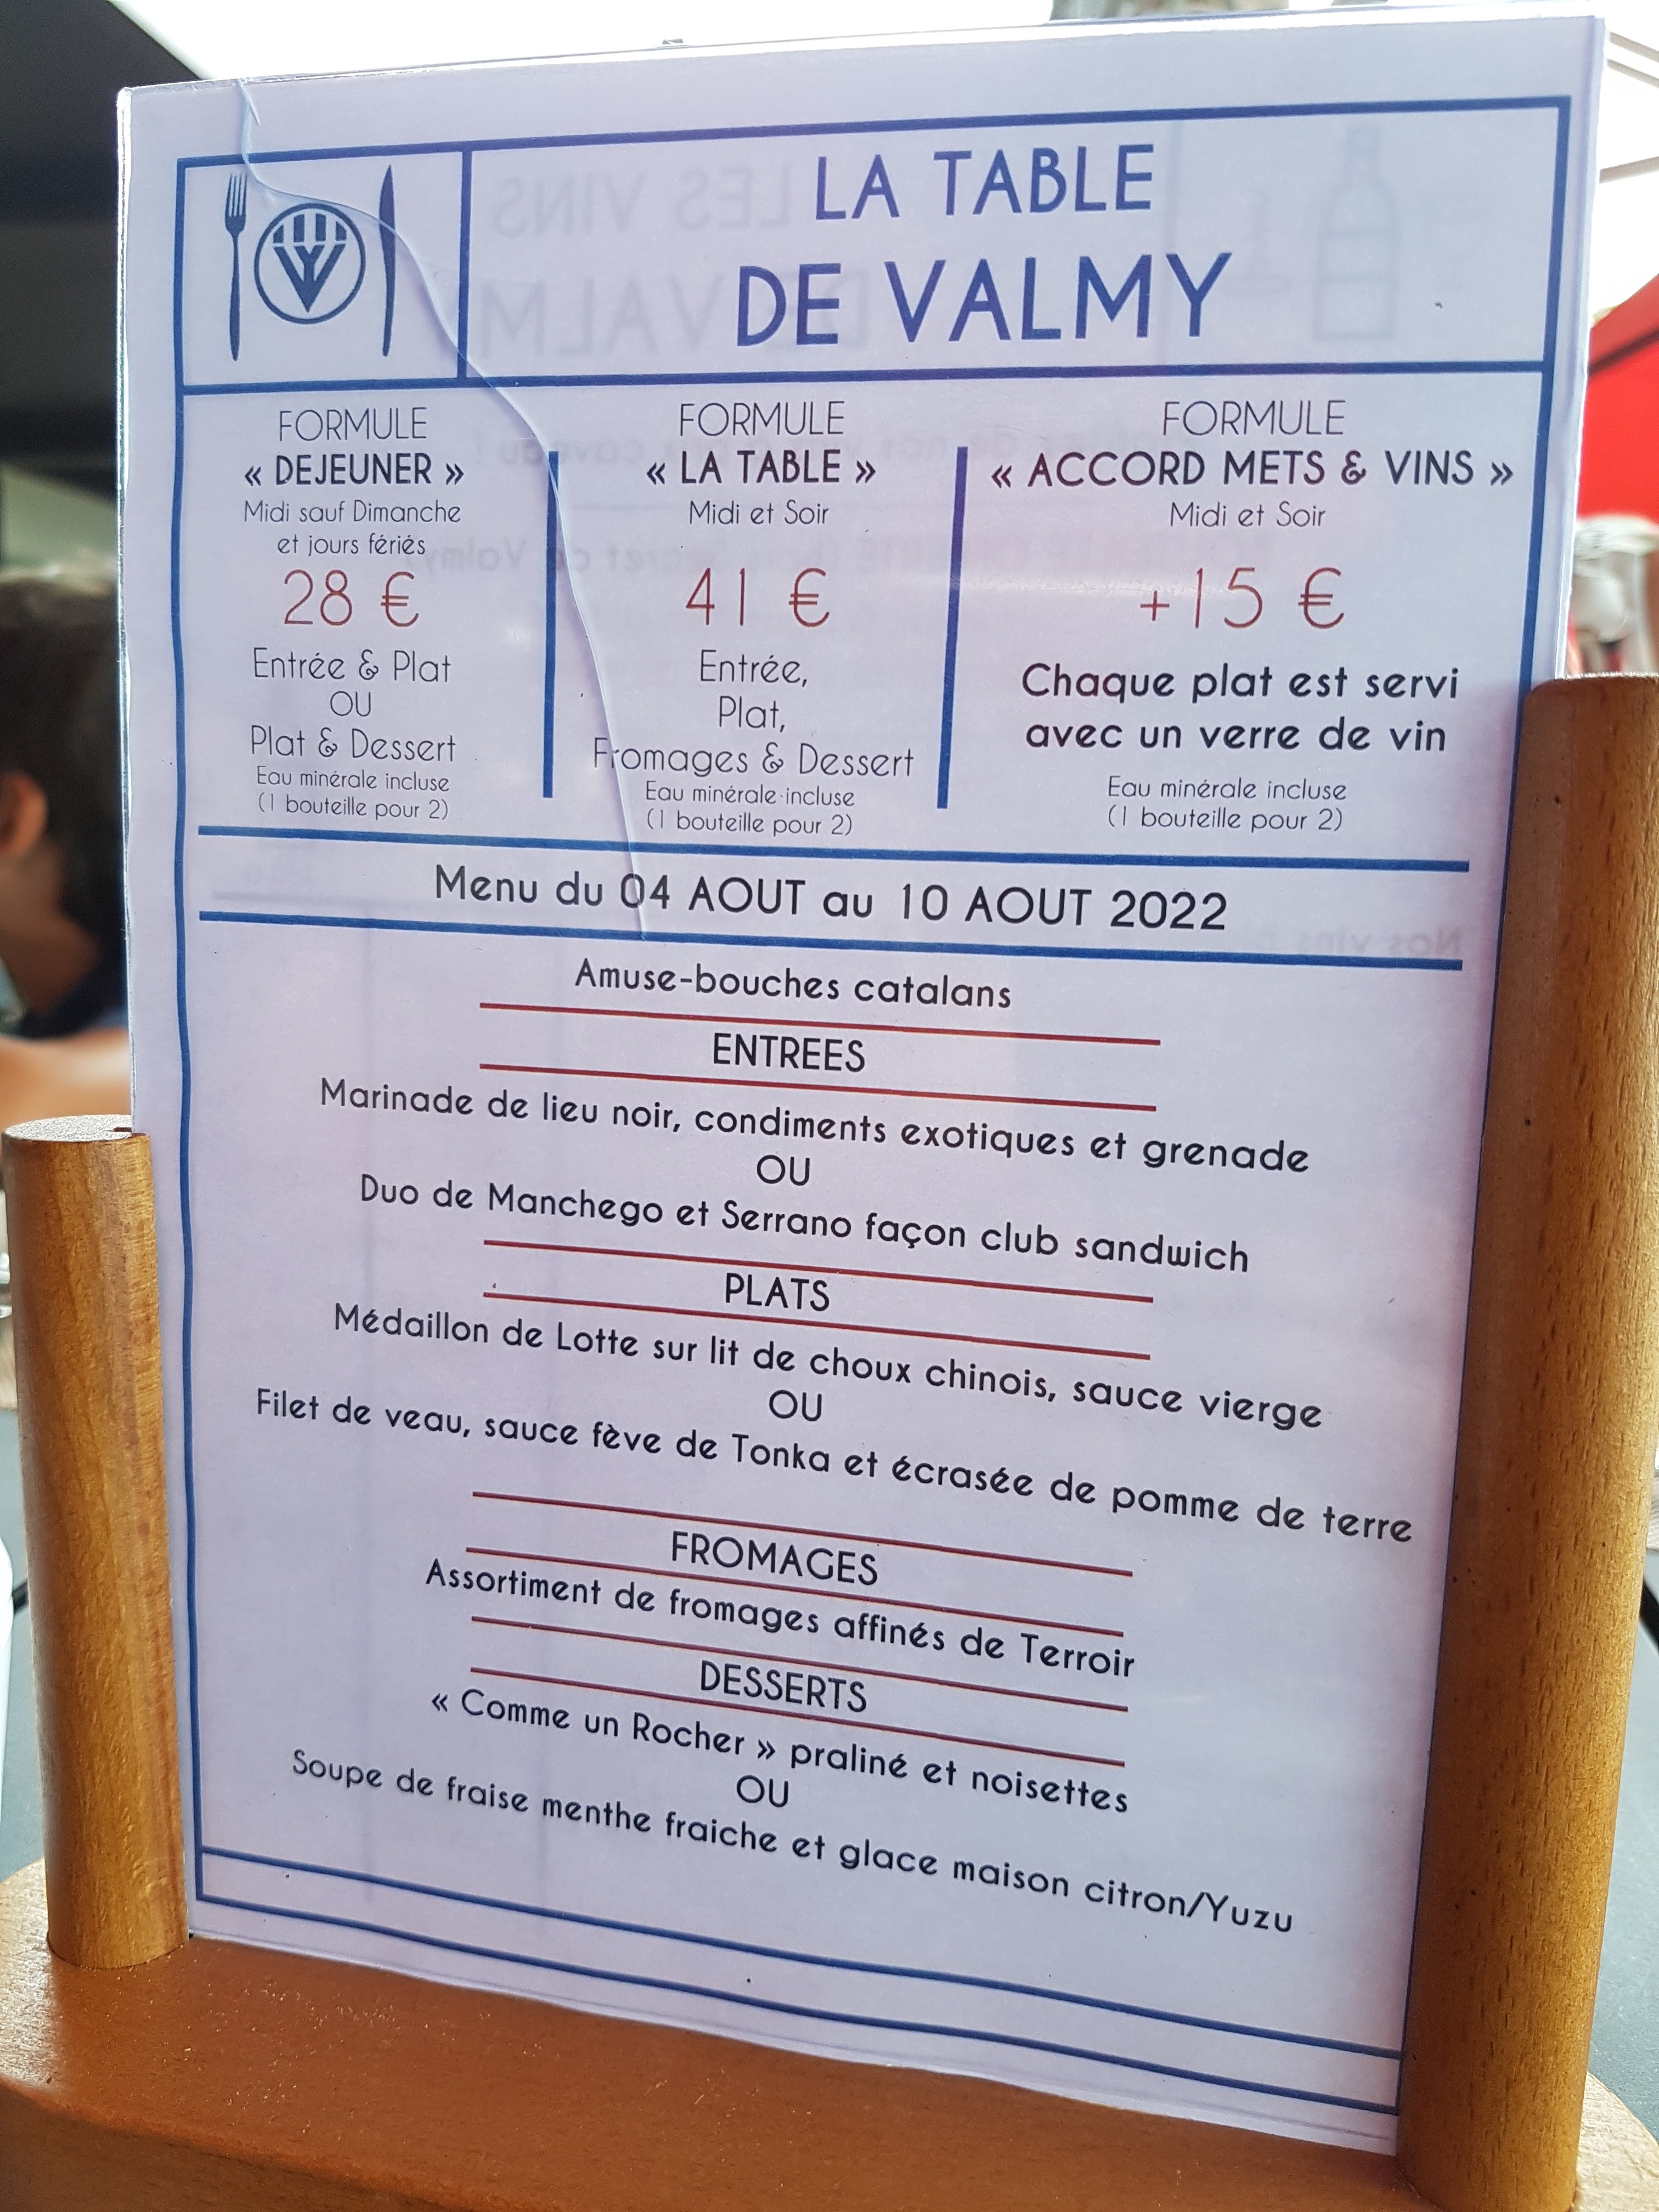 LA TABLE
DE VALMY
FORMULE
« DEJEUNER »
Midi sauf Dimanche
et jours fériés
28 €
Entrée & Plat
OU
Plat & Dessert
Eau minérale incluse
(1 bouteille pour 2)
FORMULE
« LA TABLE »
Midi et Soir
41 €
Entrée,
Plat,
Fromages & Dessert
Eau minérale incluse
(1 bouteille pour 2)
FORMULE
« ACCORD METS & VINS »
Midi et Soir
+15 €
Chaque plat est servi
avec un verre de vin
Eau minérale incluse
(1 bouteille pour 2)
Menu du 04 AOUT au 10 AOUT 2022
Amuse-bouches catalans
ENTREES
Marinade de lieu noir, condiments exotiques et grenade
OU
Duo de Manchego et Serrano façon club sandwich
PLATS
Médaillon de Lotte sur lit de choux chinois, sauce vierge
OU
Filet de veau, sauce fève de Tonka et écrasée de pomme de terre
FROMAGES
Assortiment de fromages affinés de Terroir
DESSERTS
« Comme un Rocher » praliné et noisettes
OU
Soupe de fraise menthe fraiche et glace maison citron/Yuzu